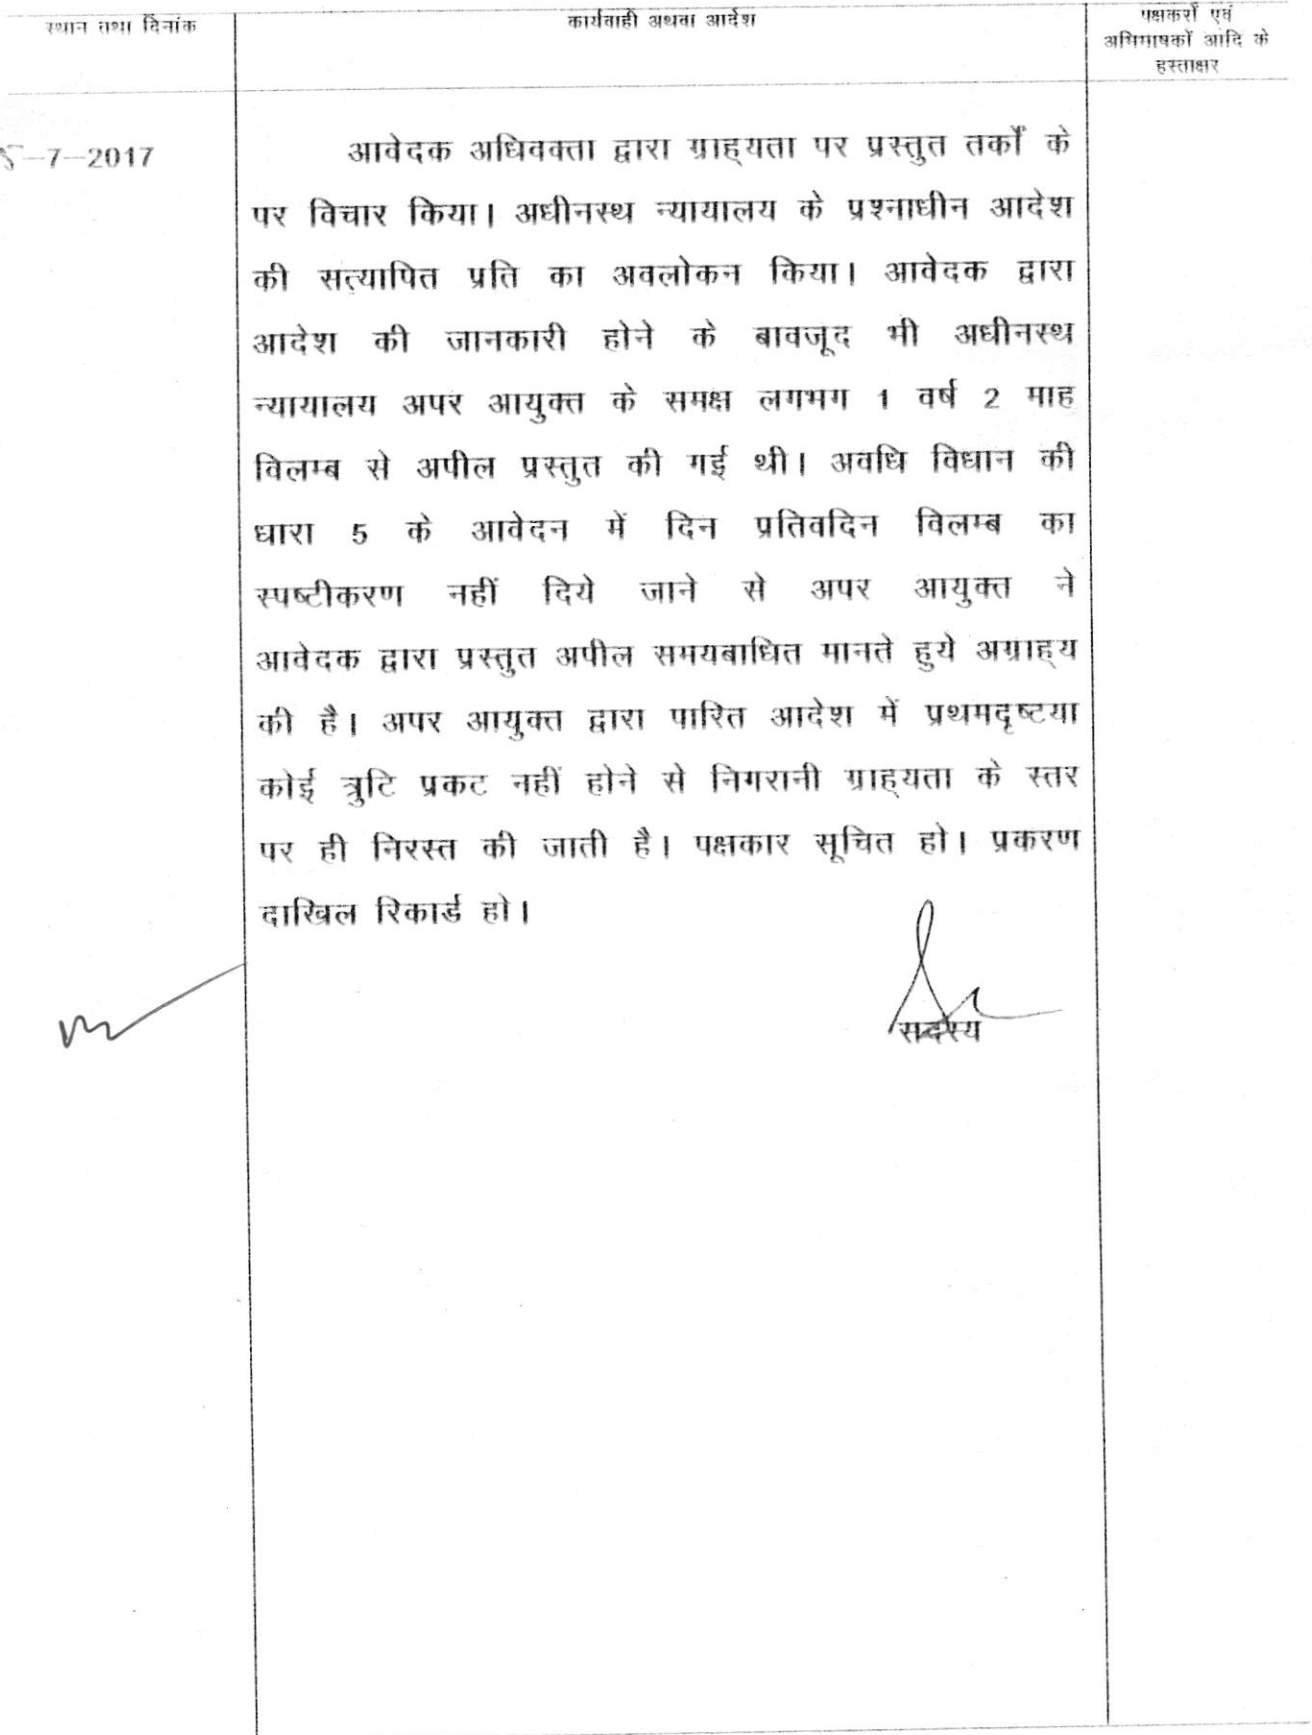 स्थान तथा दिनांक
कार्यवाही अथवा आदेश
पक्षकारों एवं
अभिभाषकों आदि के
हस्ताक्षर
5-7-2017
आवेदक अधिवक्ता द्वारा ग्राह्यता पर प्रस्तुत तर्कों के
पर विचार किया। अधीनस्थ न्यायालय के प्रश्नाधीन आदेश
की सत्यापित प्रति का अवलोकन किया। आवेदक द्वारा
आदेश की जानकारी होने के बावजूद भी अधीनस्थ
न्यायालय अपर आयुक्त के समक्ष लगभग 1 वर्ष 2 माह
विलम्ब से अपील प्रस्तुत की गई थी। अवधि विधान की
धारा 5 के आवेदन में दिन प्रतिवदिन विलम्ब का
स्पष्टीकरण नहीं दिये जाने से अपर आयुक्त ने
आवेदक द्वारा प्रस्तुत अपील समयबाधित मानते हुये अग्राह्य
की है। अपर आयुक्त द्वारा पारित आदेश में प्रथमदृष्टया
कोई त्रुटि प्रकट नहीं होने से निगरानी ग्राह्यता के स्तर
पर ही निरस्त की जाती है। पक्षकार सूचित हो। प्रकरण
दाखिल रिकार्ड हो।
सदस्य